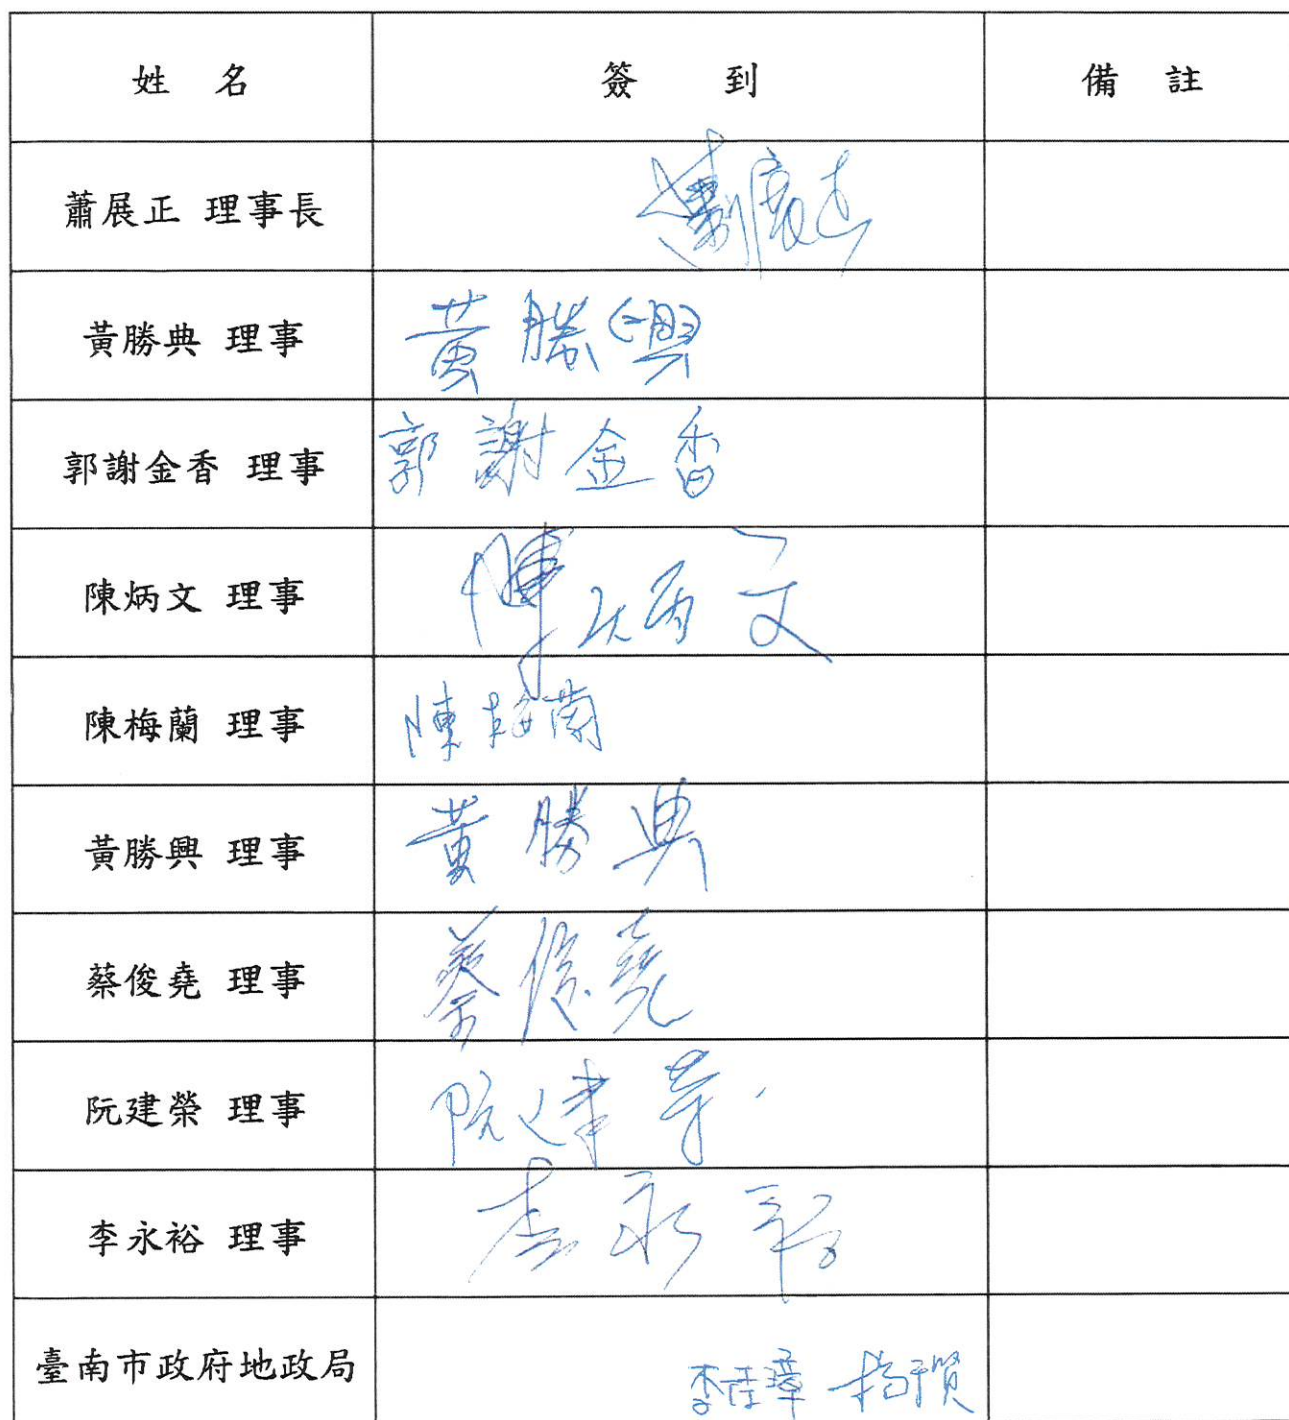 姓 名 簽 到 備 註
蕭展正 理事長 蕭展正
黃勝典 理事 黃勝興
郭謝金香 理事 郭謝金香
陳炳文 理事 陳炳文
陳梅蘭 理事 陳梅蘭
黃勝興 理事 黃勝典
蔡俊堯 理事 蔡俊堯
阮建榮 理事 阮建榮
李永裕 理事 李永裕
臺南市政府地政局 李佳璋